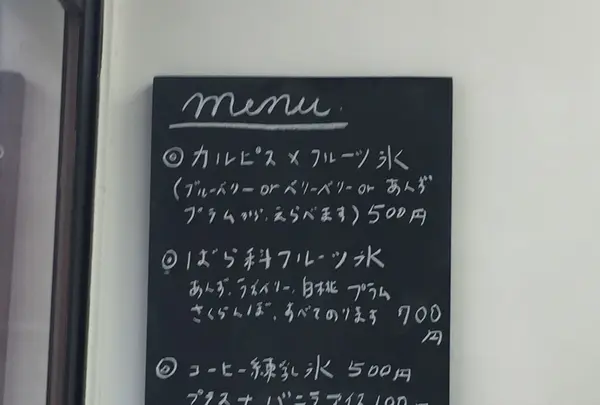 menu.
◎ カルピス×フルーツ氷
(ブルーベリー or ベリーベリー or あんず
プラムから、えらべます) 500円
◎ ばら科フルーツ氷
あんず、ラズベリー、白桃 プラム
さくらんぼ、すべてのります 700
円
◎ コーヒー練乳氷 500円
プラス + バニラアイス 100